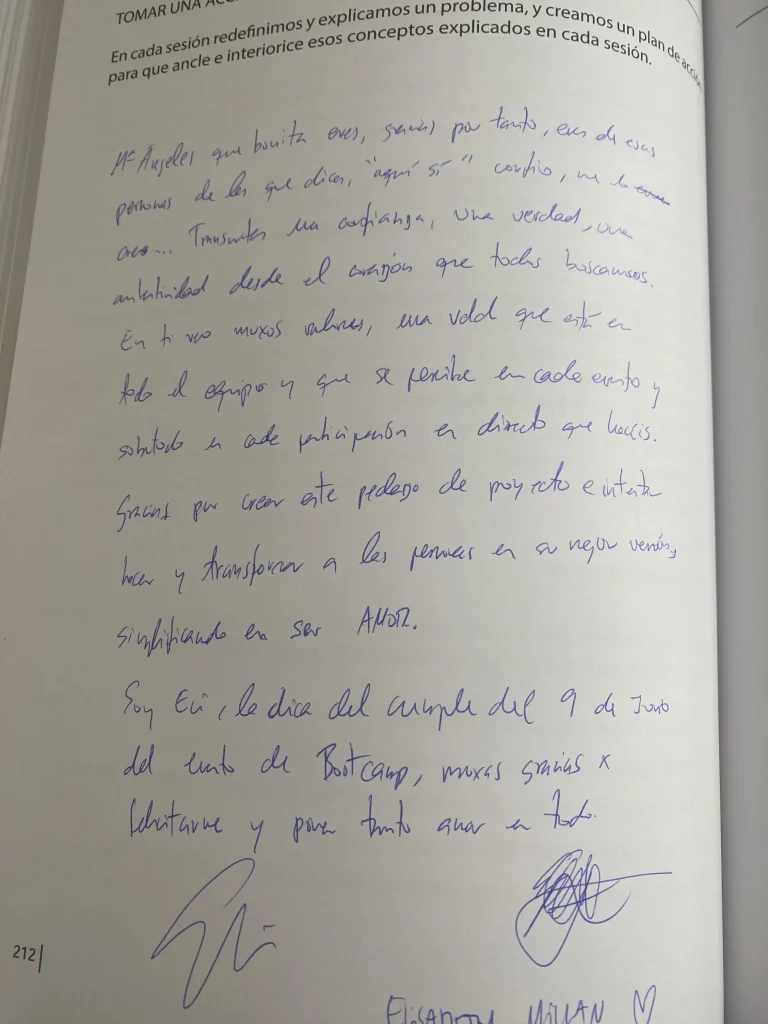 TOMAR UNA
En cada sesión redefinimos y explicamos un problema, y creamos un plan de acción
para que ancle e interiorice esos conceptos explicados en cada sesión.
Mª Ángeles que bonita eres, gracias por tanto, eres de esas
personas de las que dices, "aquí sí" confío, me lo
creo... Transmites una confianza, una verdad, una
autenticidad desde el corazón que todas buscamos.
En ti veo muxos valores, una vdad que está en
todo el equipo y que se percibe en cada evento y
sobretodo en cada participación en directo que hacéis.
Gracias por crear este pedazo de proyecto e intentar
hacer y transformar a las personas en su mejor versión,
simplificando en ser AMOR.
Soy Eli, la chica del cumple del 9 de Junio
del evento de Bootcamp, muxas gracias x
felicitarme y poner tanto amor en todo.
Eli
212
MILLAN ♡